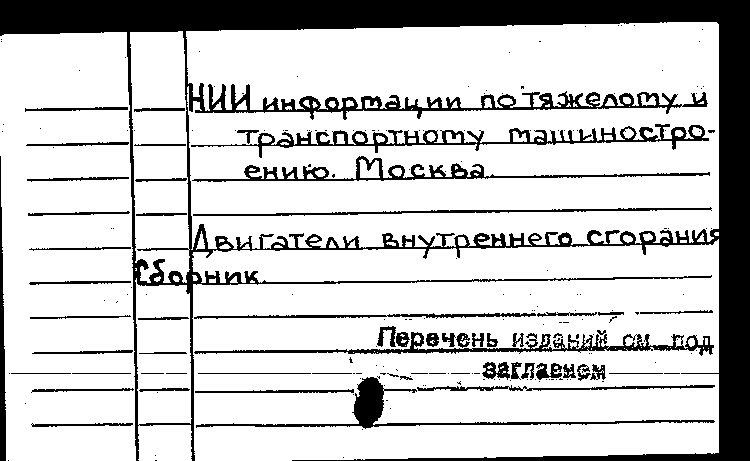 НИИ информации по тяжелому и
транспортному машиностро-
ению. Москва.
Двигатели внутреннего сгорания
Сборник.
Перечень изданий см. под
заглавием